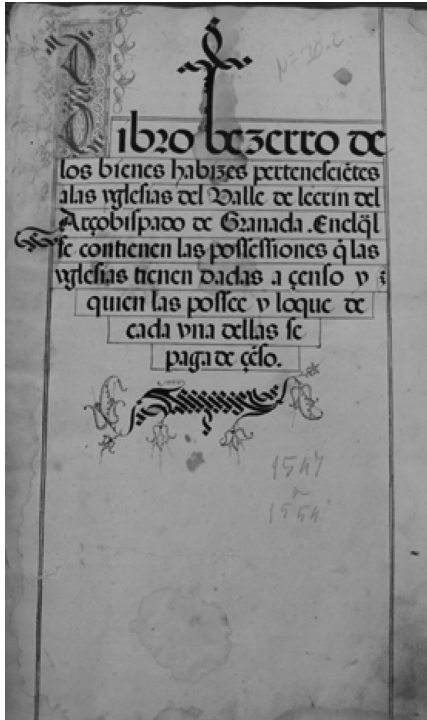 Nº 20-C
Libro bezerro de
los bienes habizes pertenesciẽtes
alas yglesias del Valle de lecrin del
Arçobispado de Granada. Enel q̃l
se contienen las possessiones q̃ las
yglesias tienen dadas a çenso y
quien las possee y loque de
cada vna dellas se
paga de çẽso.
1547
a
1554